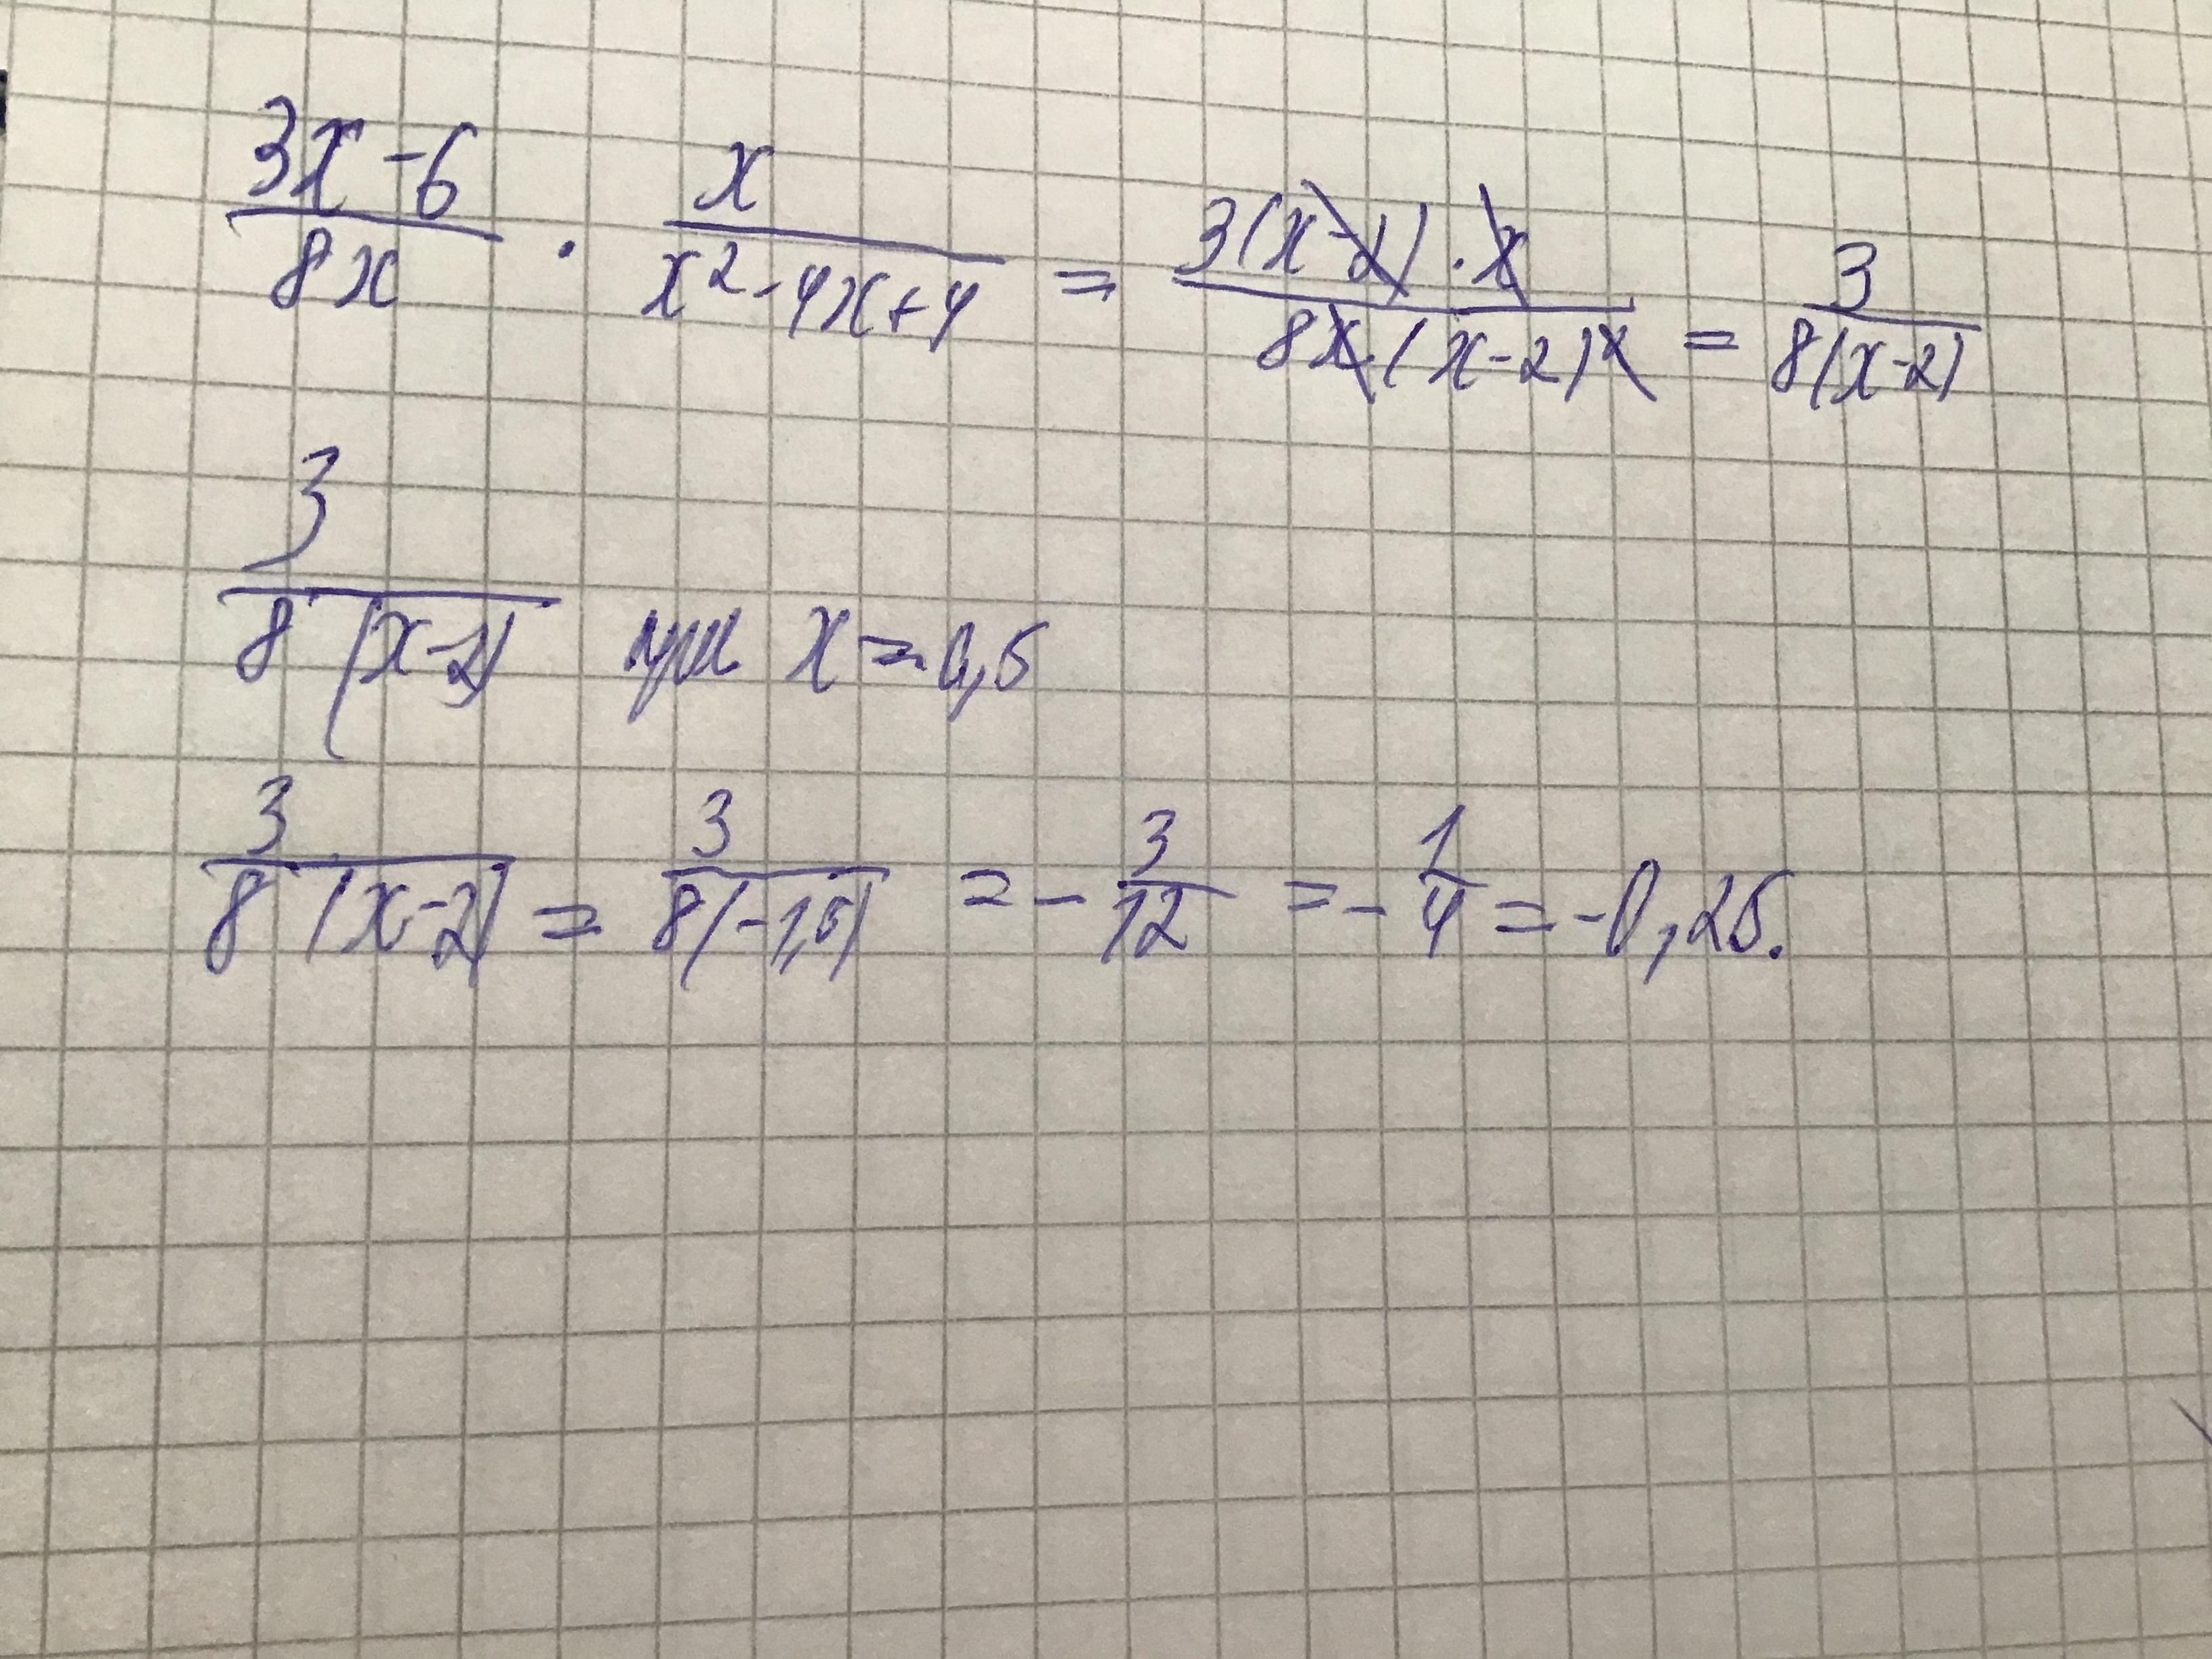 (3x-6)/(8x) · x/(x²-4x+4) = (3(x-2)·x)/(8x·(x-2)²) = 3/(8(x-2))
3/(8 (x-2)) при x=0,5
3/(8 (x-2)) = 3/(8(-1,5)) = -3/12 = -1/4 = -0,25.